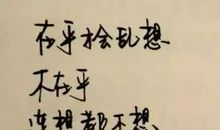 在乎才会乱想
不在乎
连想都不想